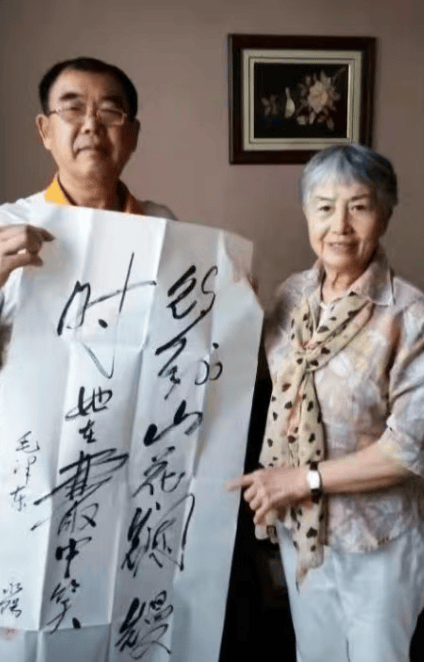 待到山花烂熳
时她在叢中笑
毛泽东